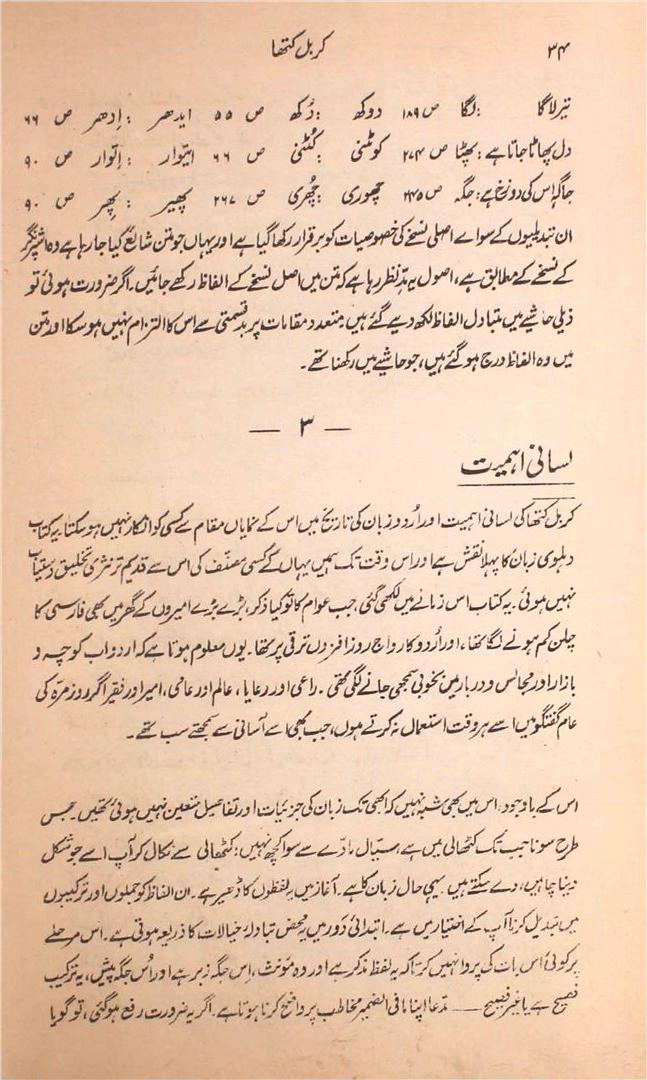 ۳۴ کربل کتھا
تیر لاگا : لگا ص ۱۸۹ دوکھ : دُکھ ص ۵۵ ایدھر : اِدھر ص ۶۶
دل پھاٹا جاتا ہے : پھٹا ص ۲۷۴ کوٹنی : کُٹنی ص ۶۶ ایتوار : اِتوار ص ۹۰
جاگہ اس کی دوزخ ہے : جگہ ص ۲۴۵ چھوری : چُھری ص ۲۶۷ پھیر : پِھر ص ۹۰
ان تبدیلیوں کے سواے اصلی نسخے کی خصوصیات کو برقرار رکھا گیا ہے اور یہاں جو متن شایع کیا جا رہا ہے وہ اشپرنگر
کے نسخے کے مطابق ہے، اصول یہ مدِّنظر رہا ہے کہ متن میں اصل نسخے کے الفاظ رکھے جائیں۔ اگر ضرورت ہوئی تو
ذیلی حاشیے میں متبادل الفاظ لکھ دیے گئے ہیں متعدد مقامات پر بدقسمتی سے اس کا التزام نہیں ہو سکا اور متن
میں وہ الفاظ درج ہو گئے ہیں، جو حاشیے میں رکھنا تھے۔
— ۳ —
لسانی اہمیت
کربل کتھا کی لسانی اہمیت اور اُردو زبان کی تاریخ میں اس کے نمایاں مقام سے کسی کو انکار نہیں ہو سکتا یہ کتاب
دہلوی زبان کا پہلا نقش ہے اور اس وقت تک ہمیں یہاں کے کسی مصنّف کی اس سے قدیم تر نثری تخلیق دستیاب
نہیں ہوئی۔ یہ کتاب اس زمانے میں لکھی گئی، جب عوام کا تو کیا ذکر، بڑے بڑے امیروں کے گھر میں بھی فارسی کا
چلن کم ہونے لگا تھا، اور اُردو کا رواج روز افزوں ترقی پر تھا۔ یوں معلوم ہوتا ہے کہ اردو اب کوچہ و
بازار اور مجالس و دربار میں بخوبی سمجھی جانے لگی تھی۔ راعی اور رعایا، عالم اور عامی، امیر اور فقیر اگر روزمرّہ کی
عام گفتگو میں اسے ہر وقت استعمال نہ کرتے ہوں، جب بھی اسے آسانی سے سمجھتے سب تھے۔
اس کے باوجود، اس میں بھی شبہ نہیں کہ ابھی تک زبان کی جزئیات اور تفاصیل متعین نہیں ہوئی تھیں۔ جس
طرح سونا جب تک کٹھالی میں ہے، سیّال مادّے سے سوا کچھ نہیں؛ کٹھالی سے نکال کر آپ اسے جو شکل
دینا چاہیں، دے سکتے ہیں۔ یہی حال زبان کا ہے۔ آغاز میں یہ لفظوں کا ڈھیر ہے۔ ان الفاظ کو جملوں اور ترکیبوں
میں تبدیل کرنا آپ کے اختیار میں ہے۔ ابتدائی دَور میں یہ محض تبادلۂ خیالات کا ذریعہ ہوتی ہے۔ اس مرحلے
پر کوئی اس بات کی پروا نہیں کرتا کہ یہ لفظ مذکر ہے اور وہ مؤنث، اِس جگہ زبر ہے اور اُس جگہ پیش، یہ ترکیب
فصیح ہے یا غیر فصیح — مدّعا اپنا مافی الضمیر مخاطب پر واضح کرنا ہوتا ہے۔ اگر یہ ضرورت رفع ہو گئی، تو گویا